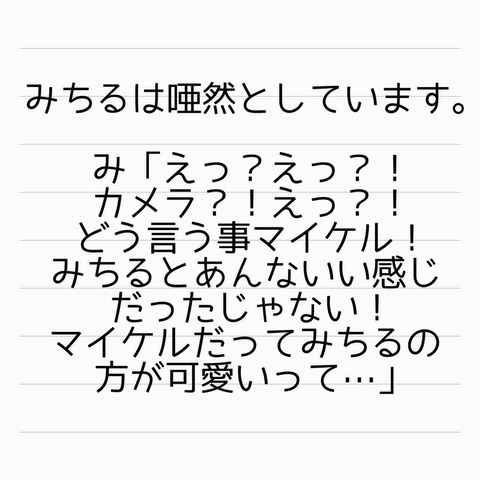 みちるは唖然としています。
み「えっ？えっ？！
カメラ？！えっ？！
どう言う事マイケル！
みちるとあんないい感じ
だったじゃない！
マイケルだってみちるの
方が可愛いって…」